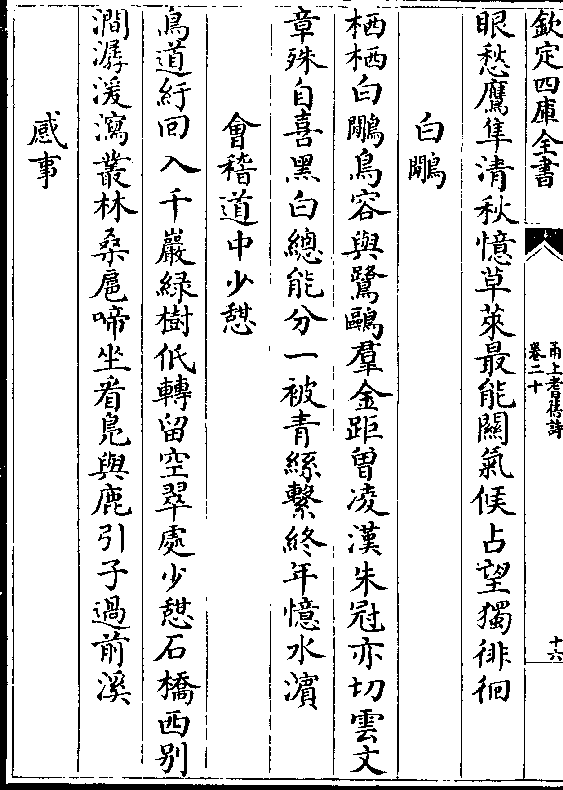 欽定四庫全書
甬上耆舊詩
卷二十
十六
眼愁鷹隼清秋憶草萊最能關氣候占望獨徘徊
白鷴
栖栖白鷴鳥容與鷺鷗羣金距曾凌漢朱冠亦切雲文
章殊自喜黑白總能分一被青絲繫終年憶水濵
會稽道中少憇
鳥道紆回入千巖緑樹低轉留空翠處少憇石橋西别
澗潺湲瀉叢林桑扈啼坐看鳬與鹿引子過前溪
感事